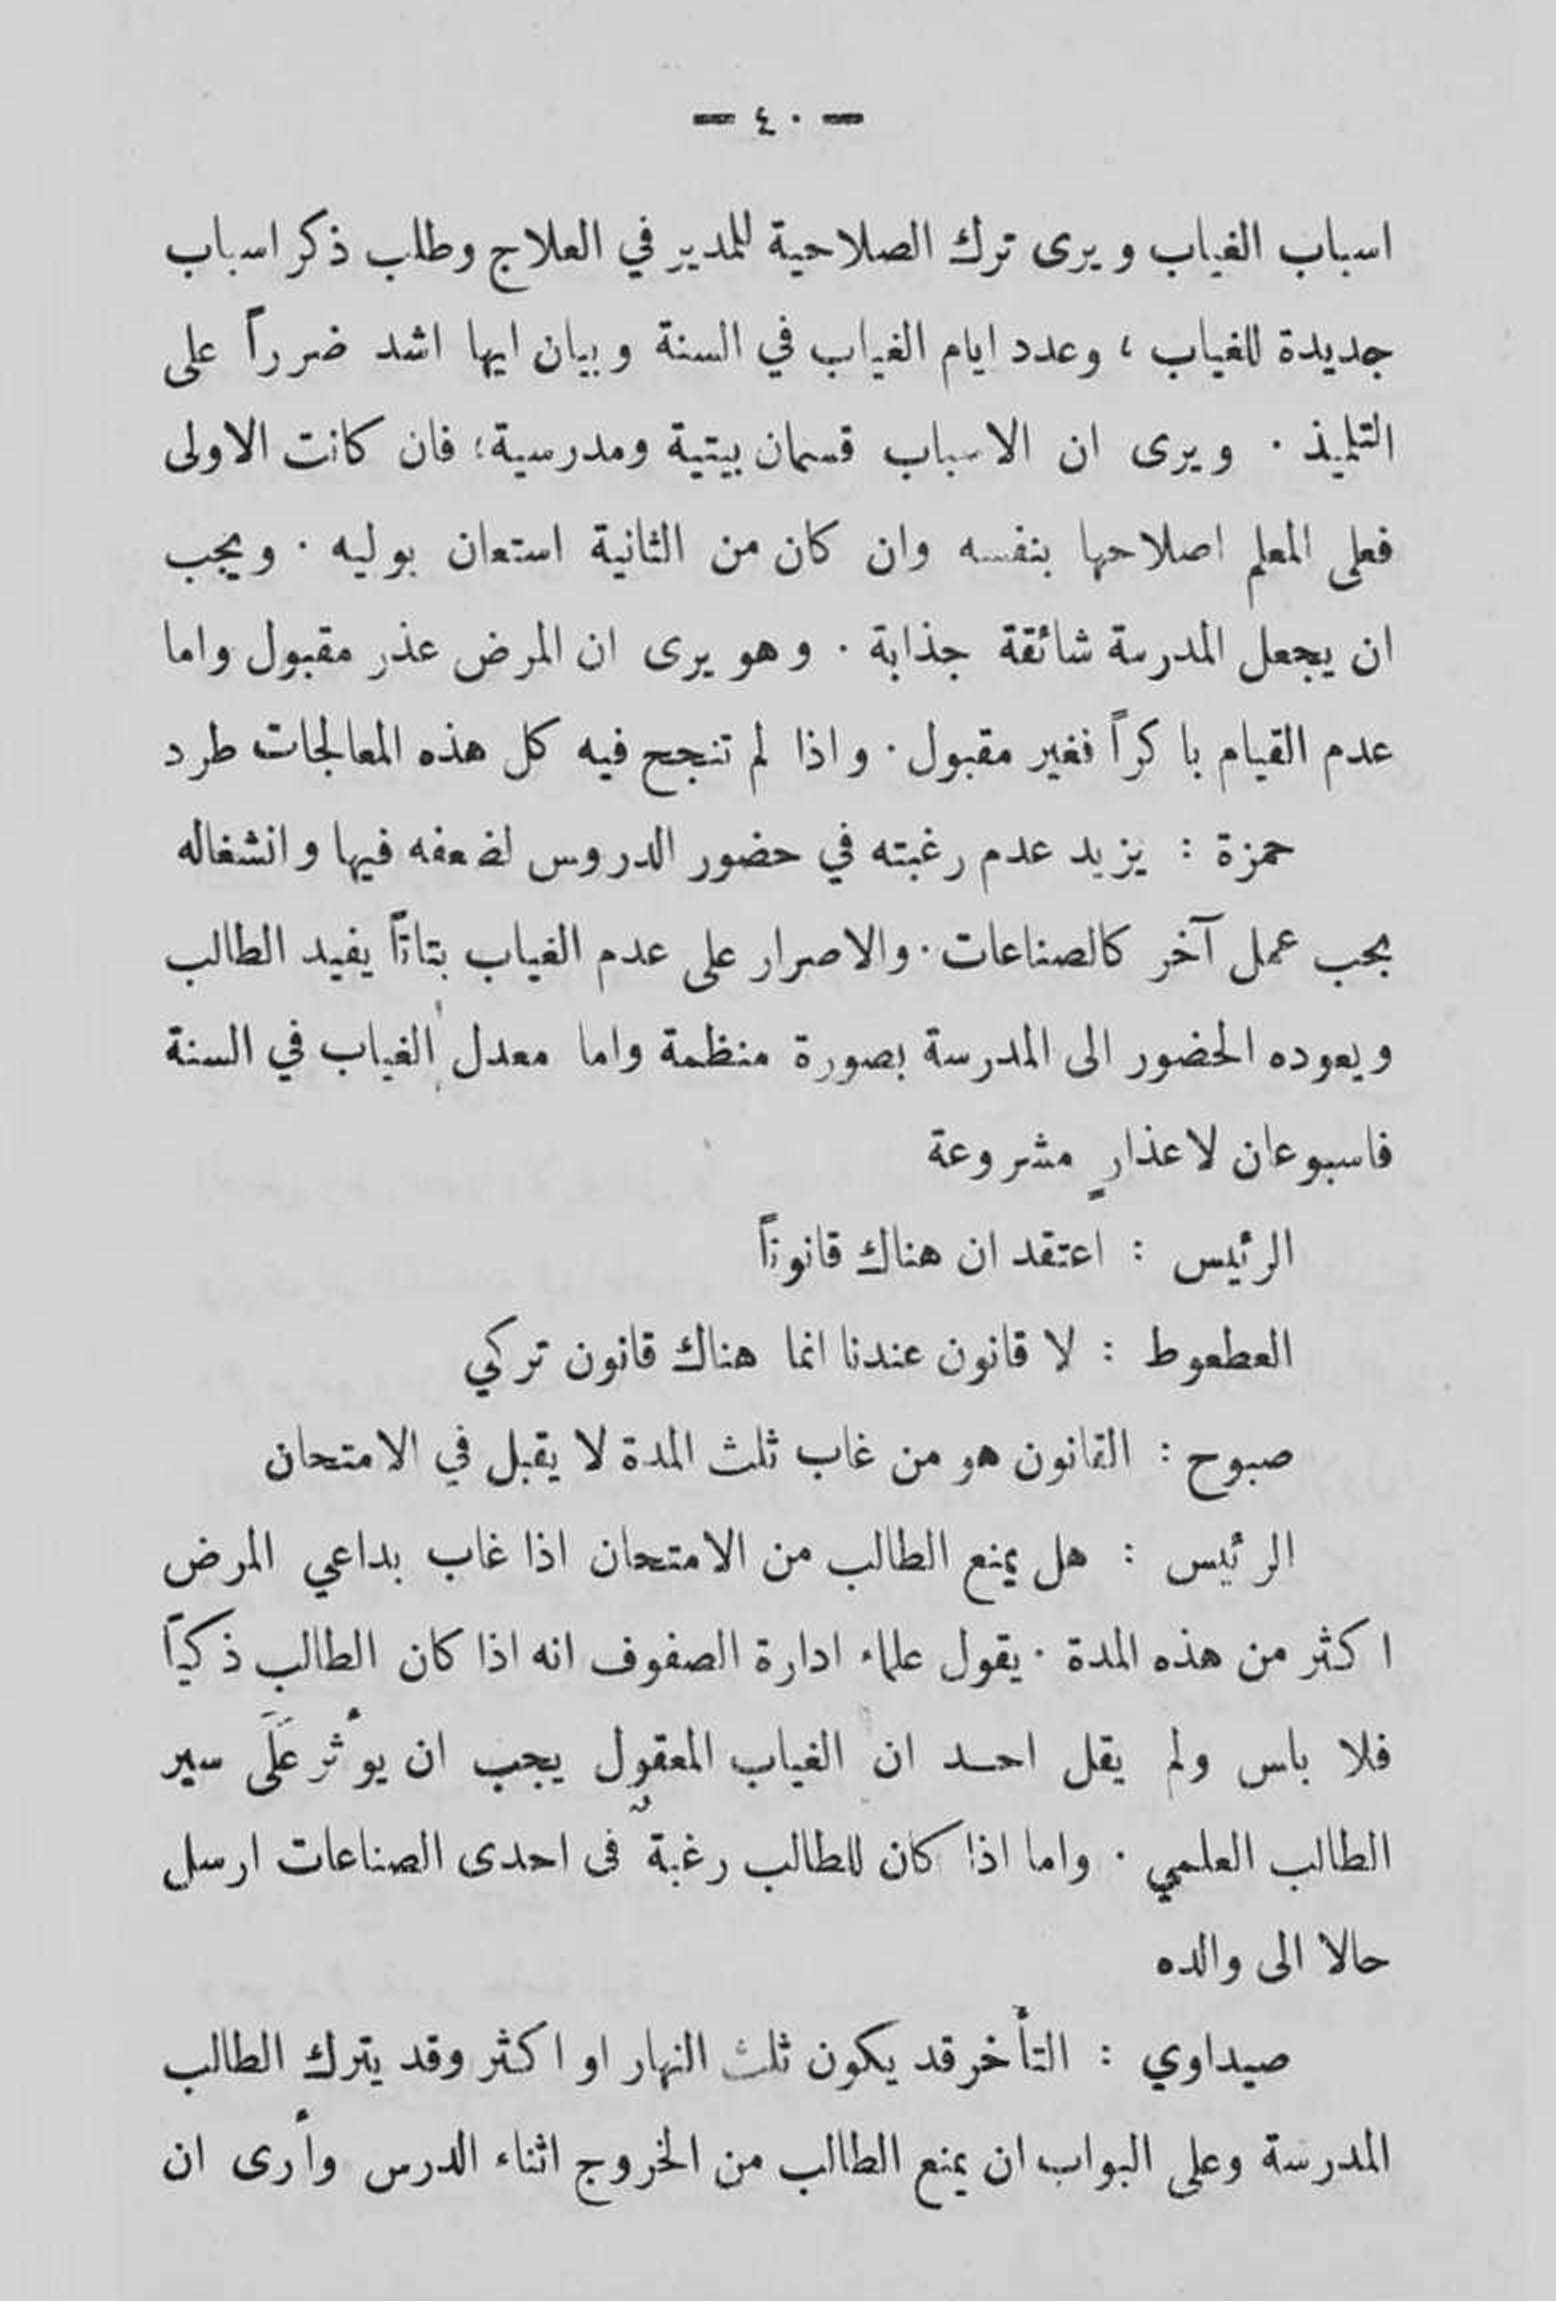 — ٤٠ —
اسباب الغياب ويرى ترك الصلاحية للمدير في العلاج وطلب ذكر اسباب
جديدة للغياب ، وعدد ايام الغياب في السنة وبيان ايها اشد ضرراً على
التلميذ . ويرى ان الاسباب قسمان بيتية ومدرسية ؛ فان كانت الاولى
فعلى المعلم اصلاحها بنفسه وان كان من الثانية استعان بوليه . ويجب
ان يجعل المدرسة شائقة جذابة . وهو يرى ان المرض عذر مقبول واما
عدم القيام باكراً فغير مقبول . واذا لم تنجح فيه كل هذه المعالجات طرد
حمزة : يزيد عدم رغبته في حضور الدروس لضعفه فيها وانشغاله
بحب عمل آخر كالصناعات . والاصرار على عدم الغياب بتاتاً يفيد الطالب
ويعوده الحضور الى المدرسة بصورة منظمة واما معدل الغياب في السنة
فاسبوعان لاعذارٍ مشروعة
الرئيس : اعتقد ان هناك قانوناً
العطعوط : لا قانون عندنا انما هناك قانون تركي
صبوح : القانون هو من غاب ثلث المدة لا يقبل في الامتحان
الرئيس : هل يمنع الطالب من الامتحان اذا غاب بداعي المرض
اكثر من هذه المدة . يقول علماء ادارة الصفوف انه اذا كان الطالب ذكياً
فلا باس ولم يقل احد ان الغياب المعقول يجب ان يوٴثر عَلَى سير
الطالب العلمي . واما اذا كان للطالب رغبةٌ فى احدى الصناعات ارسل
حالا الى والده
صيداوي : التأخر قد يكون ثلث النهار او اكثر وقد يترك الطالب
المدرسة وعلى البواب ان يمنع الطالب من الخروج اثناء الدرس وأرى ان